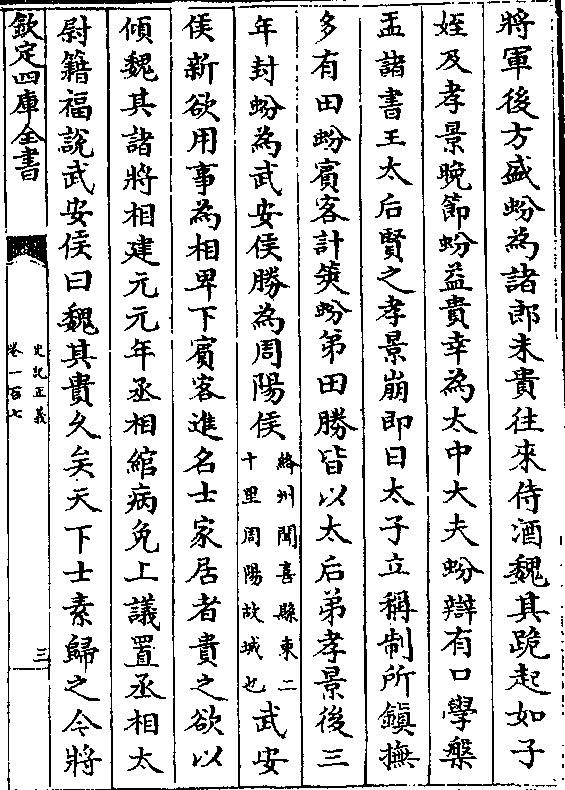 將軍後方盛蚡為諸郎未貴往來侍酒魏其跪起如子
姪及孝景晚節蚡益貴幸為太中大夫蚡辯有口學槃
盂諸書王太后賢之孝景崩即日太子立稱制所鎮撫
多有田蚡賓客計筴蚡弟田勝皆以太后弟孝景後三
年封蚡為武安侯勝為周陽侯
絳州聞喜縣東二
十里周陽故城也
武安
侯新欲用事為相卑下賓客進名士家居者貴之欲以
傾魏其諸將相建元元年丞相綰病免上議置丞相太
尉籍福說武安侯曰魏其貴久矣天下士素歸之今將
欽定四庫全書
史記正義
卷一百七
三